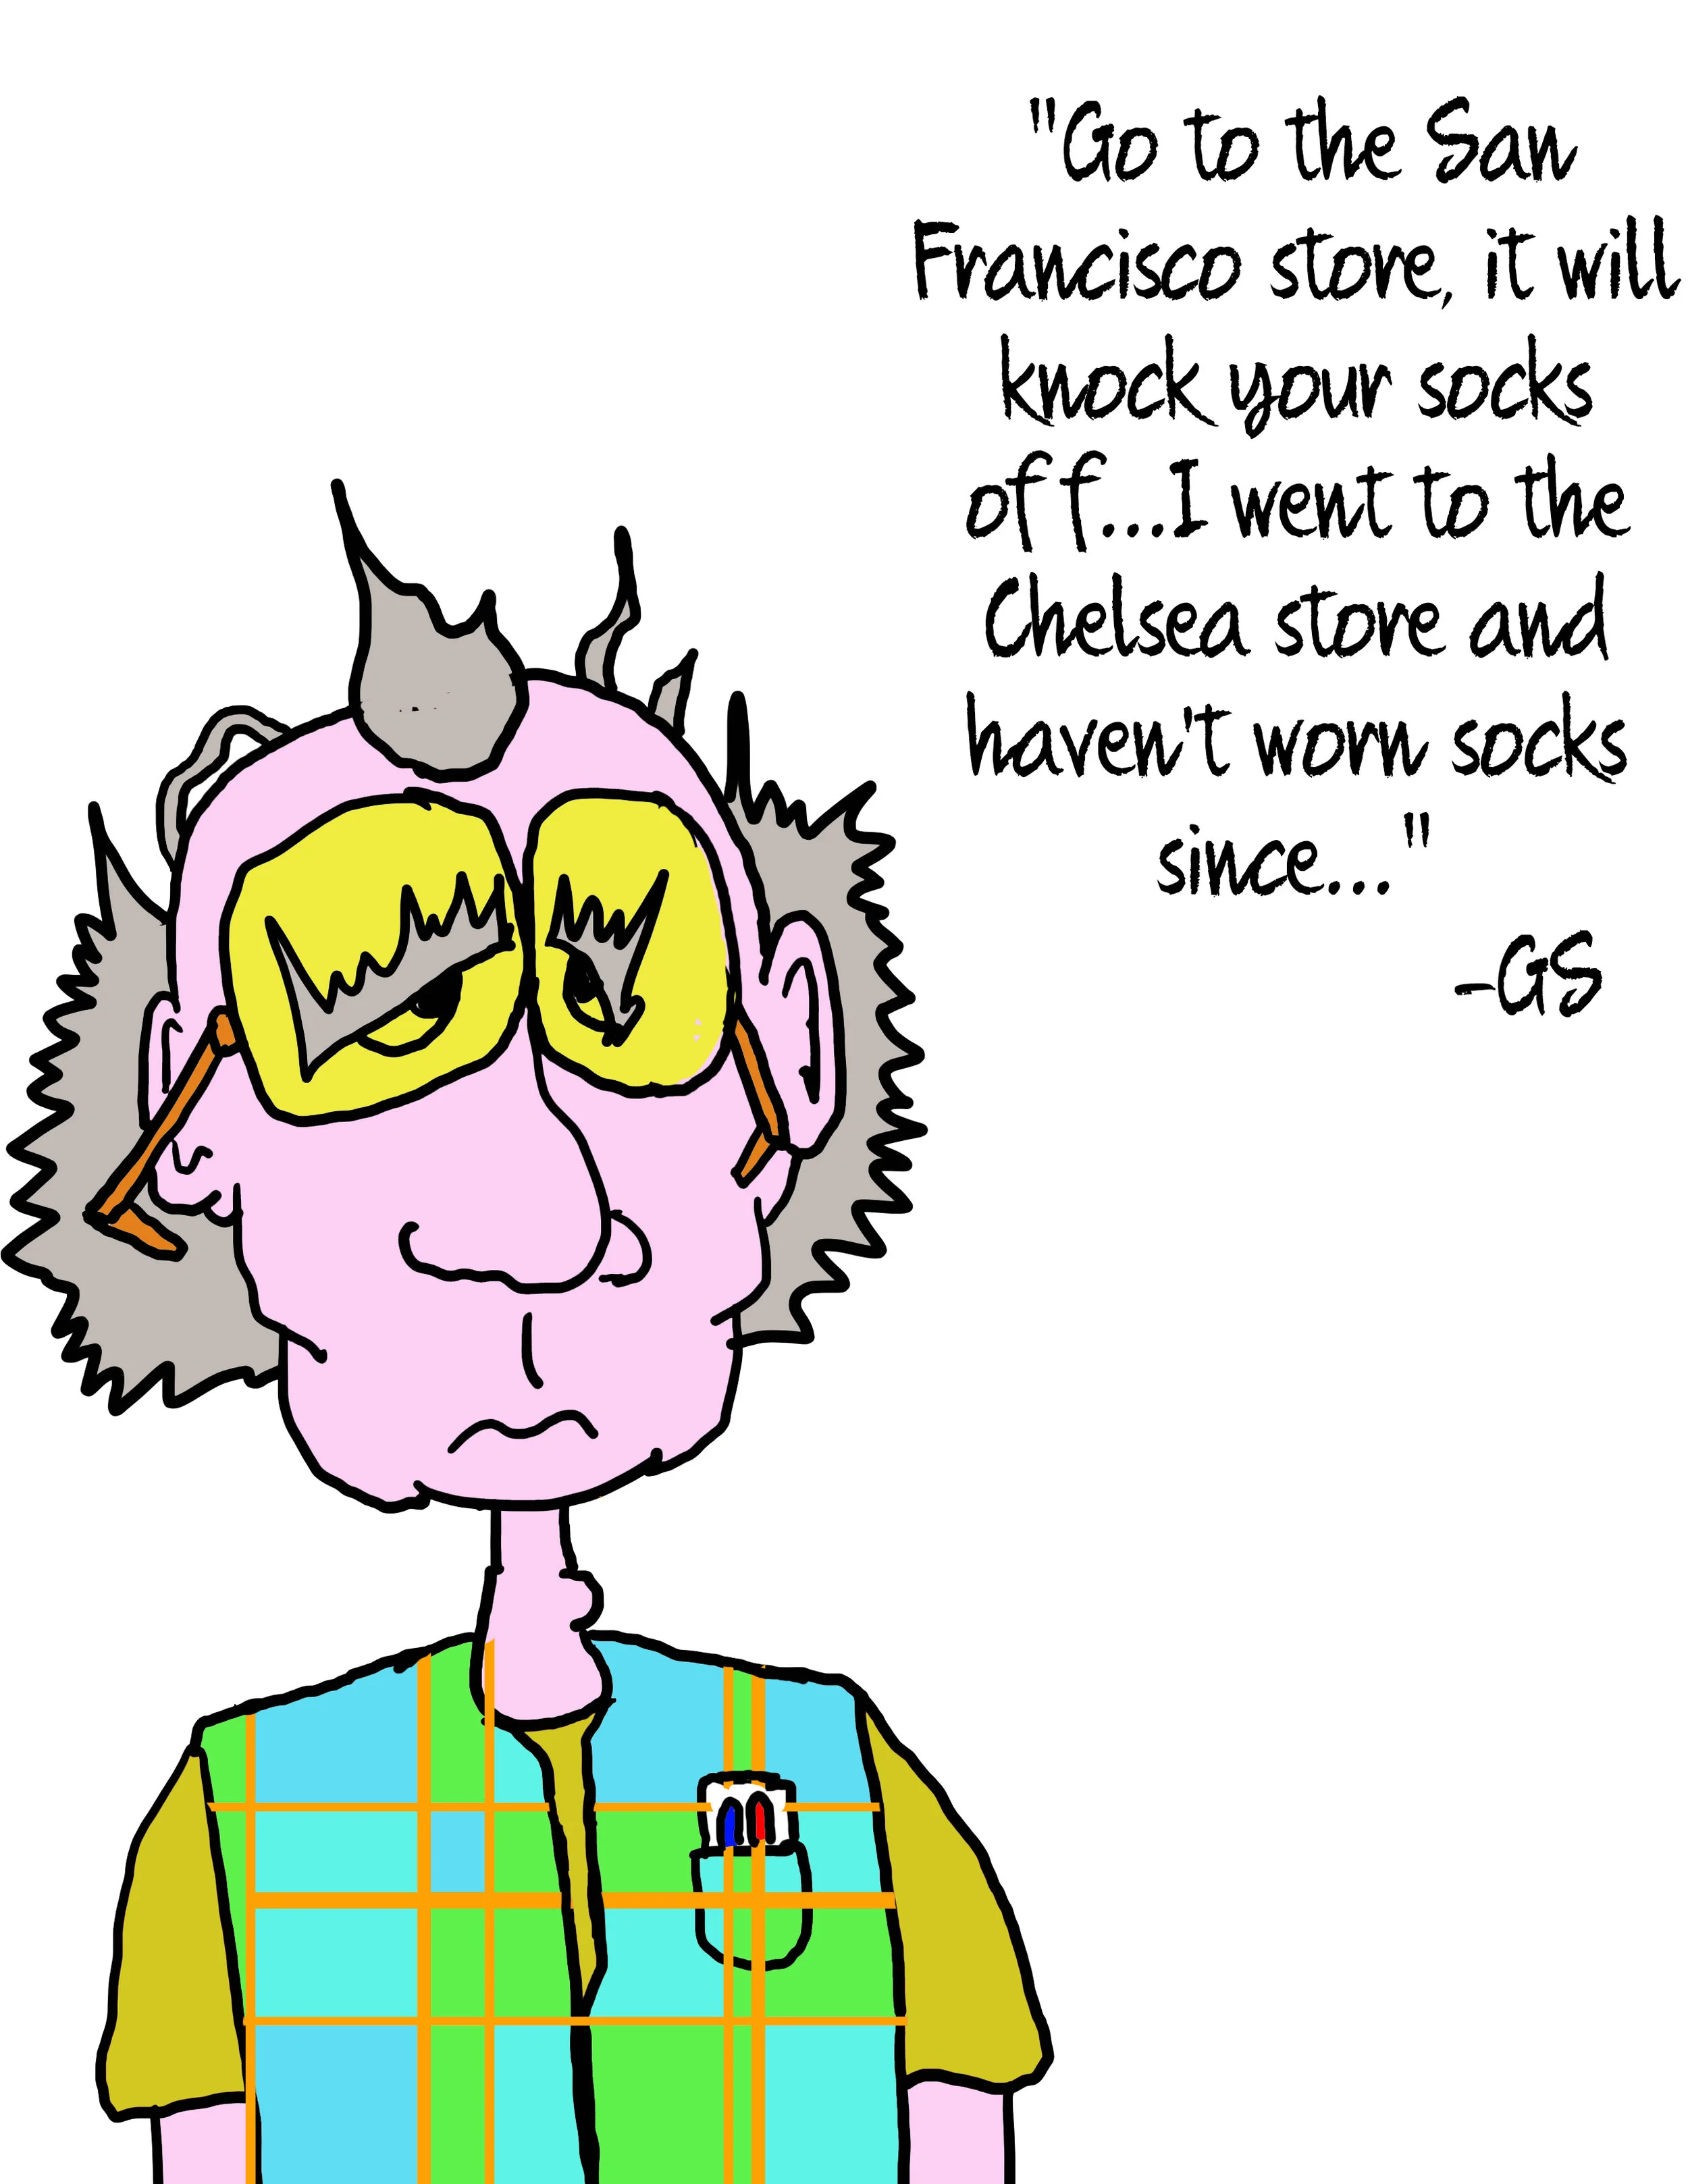 "Go to the San
Francisco store, it will
knock your socks
off...I went to the
Chelsea store and
haven't worn socks
since..."
-GS